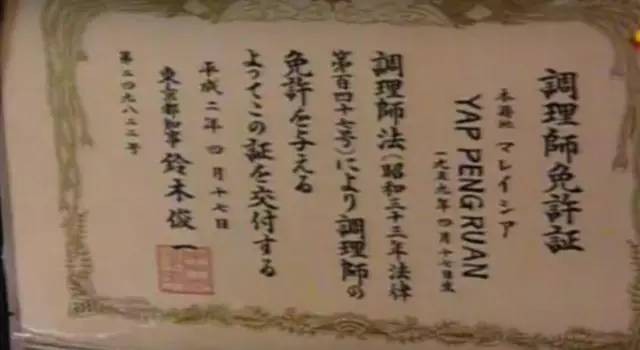 調理師免許証
本籍地 マレイシア
YAP PENG RUAN
一九五九年四月十七日生
調理師法(昭和三十三年法律
第百四十七号)により調理師の
免許を与える
よってこの証を交付する
平成二年四月十七日
東京都知事 鈴木俊一
第二四九八二二号